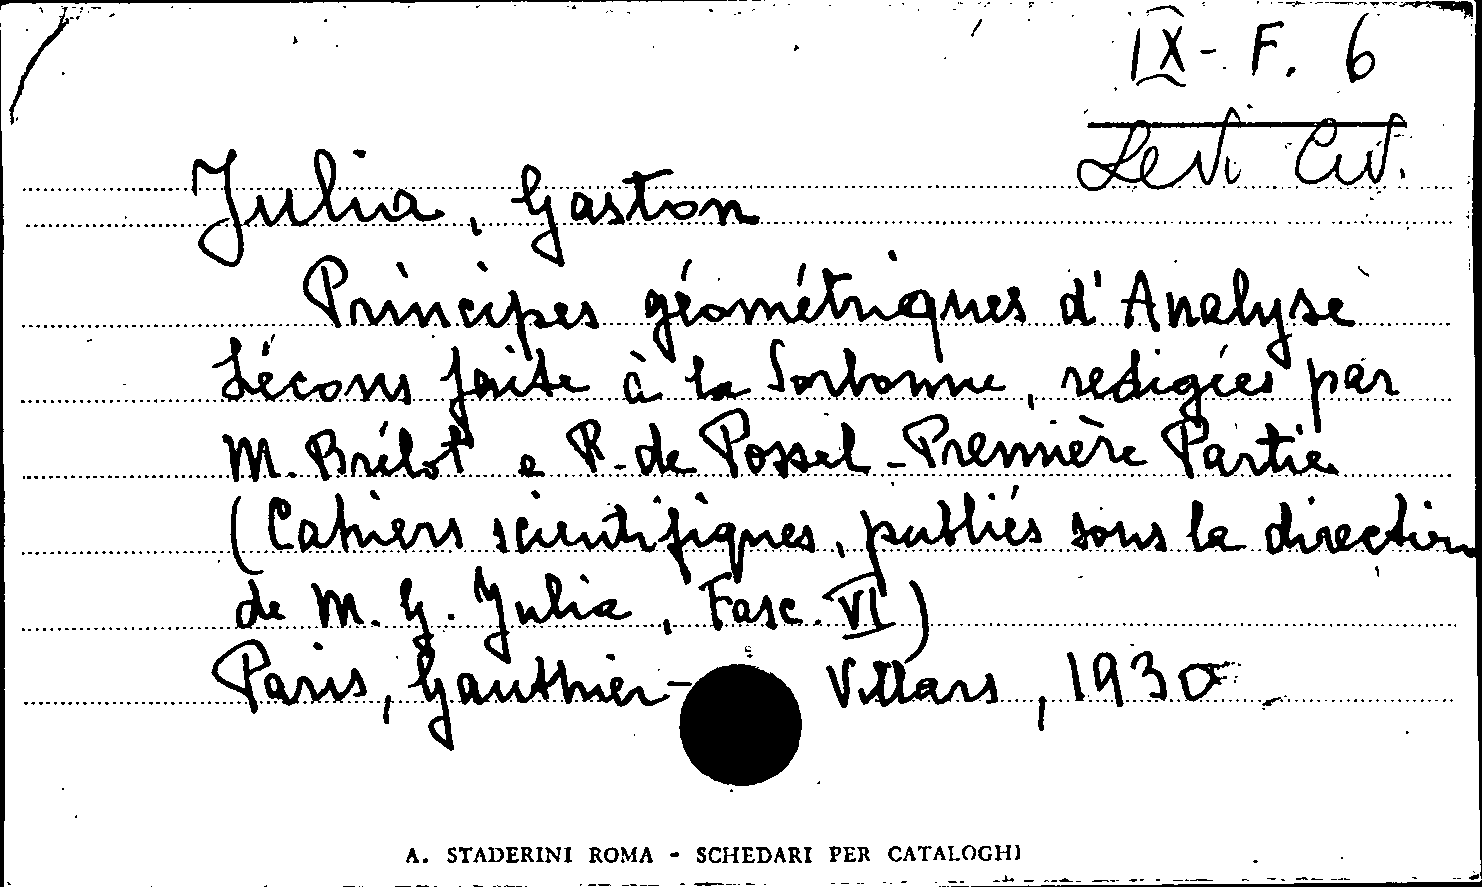 IX - F. 6
Levi Civ.
Julia, Gaston
Principes géométriques d'Analyse
Lécons faite à la Sorbonne, redigées par
M. Brélot e R. de Possel - Première Partie
(Cahiers scientifiques, publiés sous la direction
de M. G. Julia, Fasc. VI)
Paris, Gauthier-Villars, 1930
A. STADERINI ROMA - SCHEDARI PER CATALOGHI